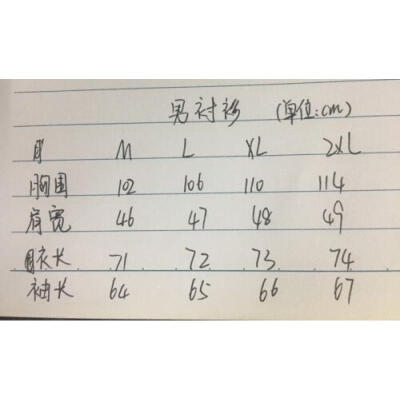 男衬衫 (单位:cm)
M L XL 2XL
胸围 102 106 110 114
肩宽 46 47 48 49
衣长 71 72 73 74
袖长 64 65 66 67